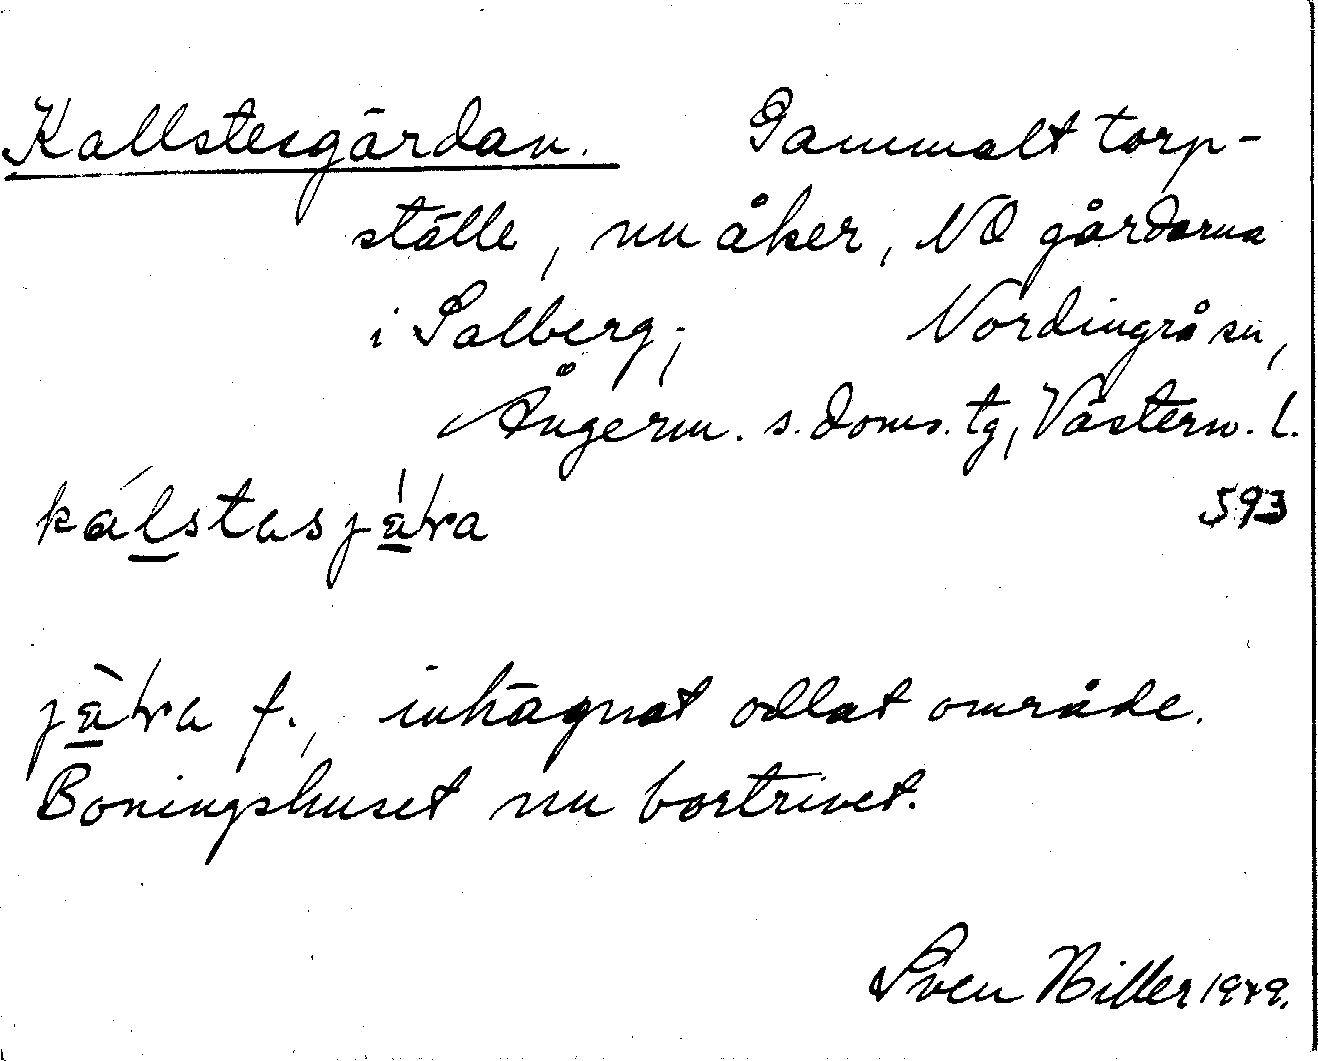 Kallstesgärdan. Gammalt torp-
ställe, nu åker, NO gårdarna
i Salberg; Nordingrå sn,
Ångerm. s. doms. tg, Västern. l.
593
Boningshuset nu bortrivet.
f., inhägnat odlat område.
Sven Hiller 1949.